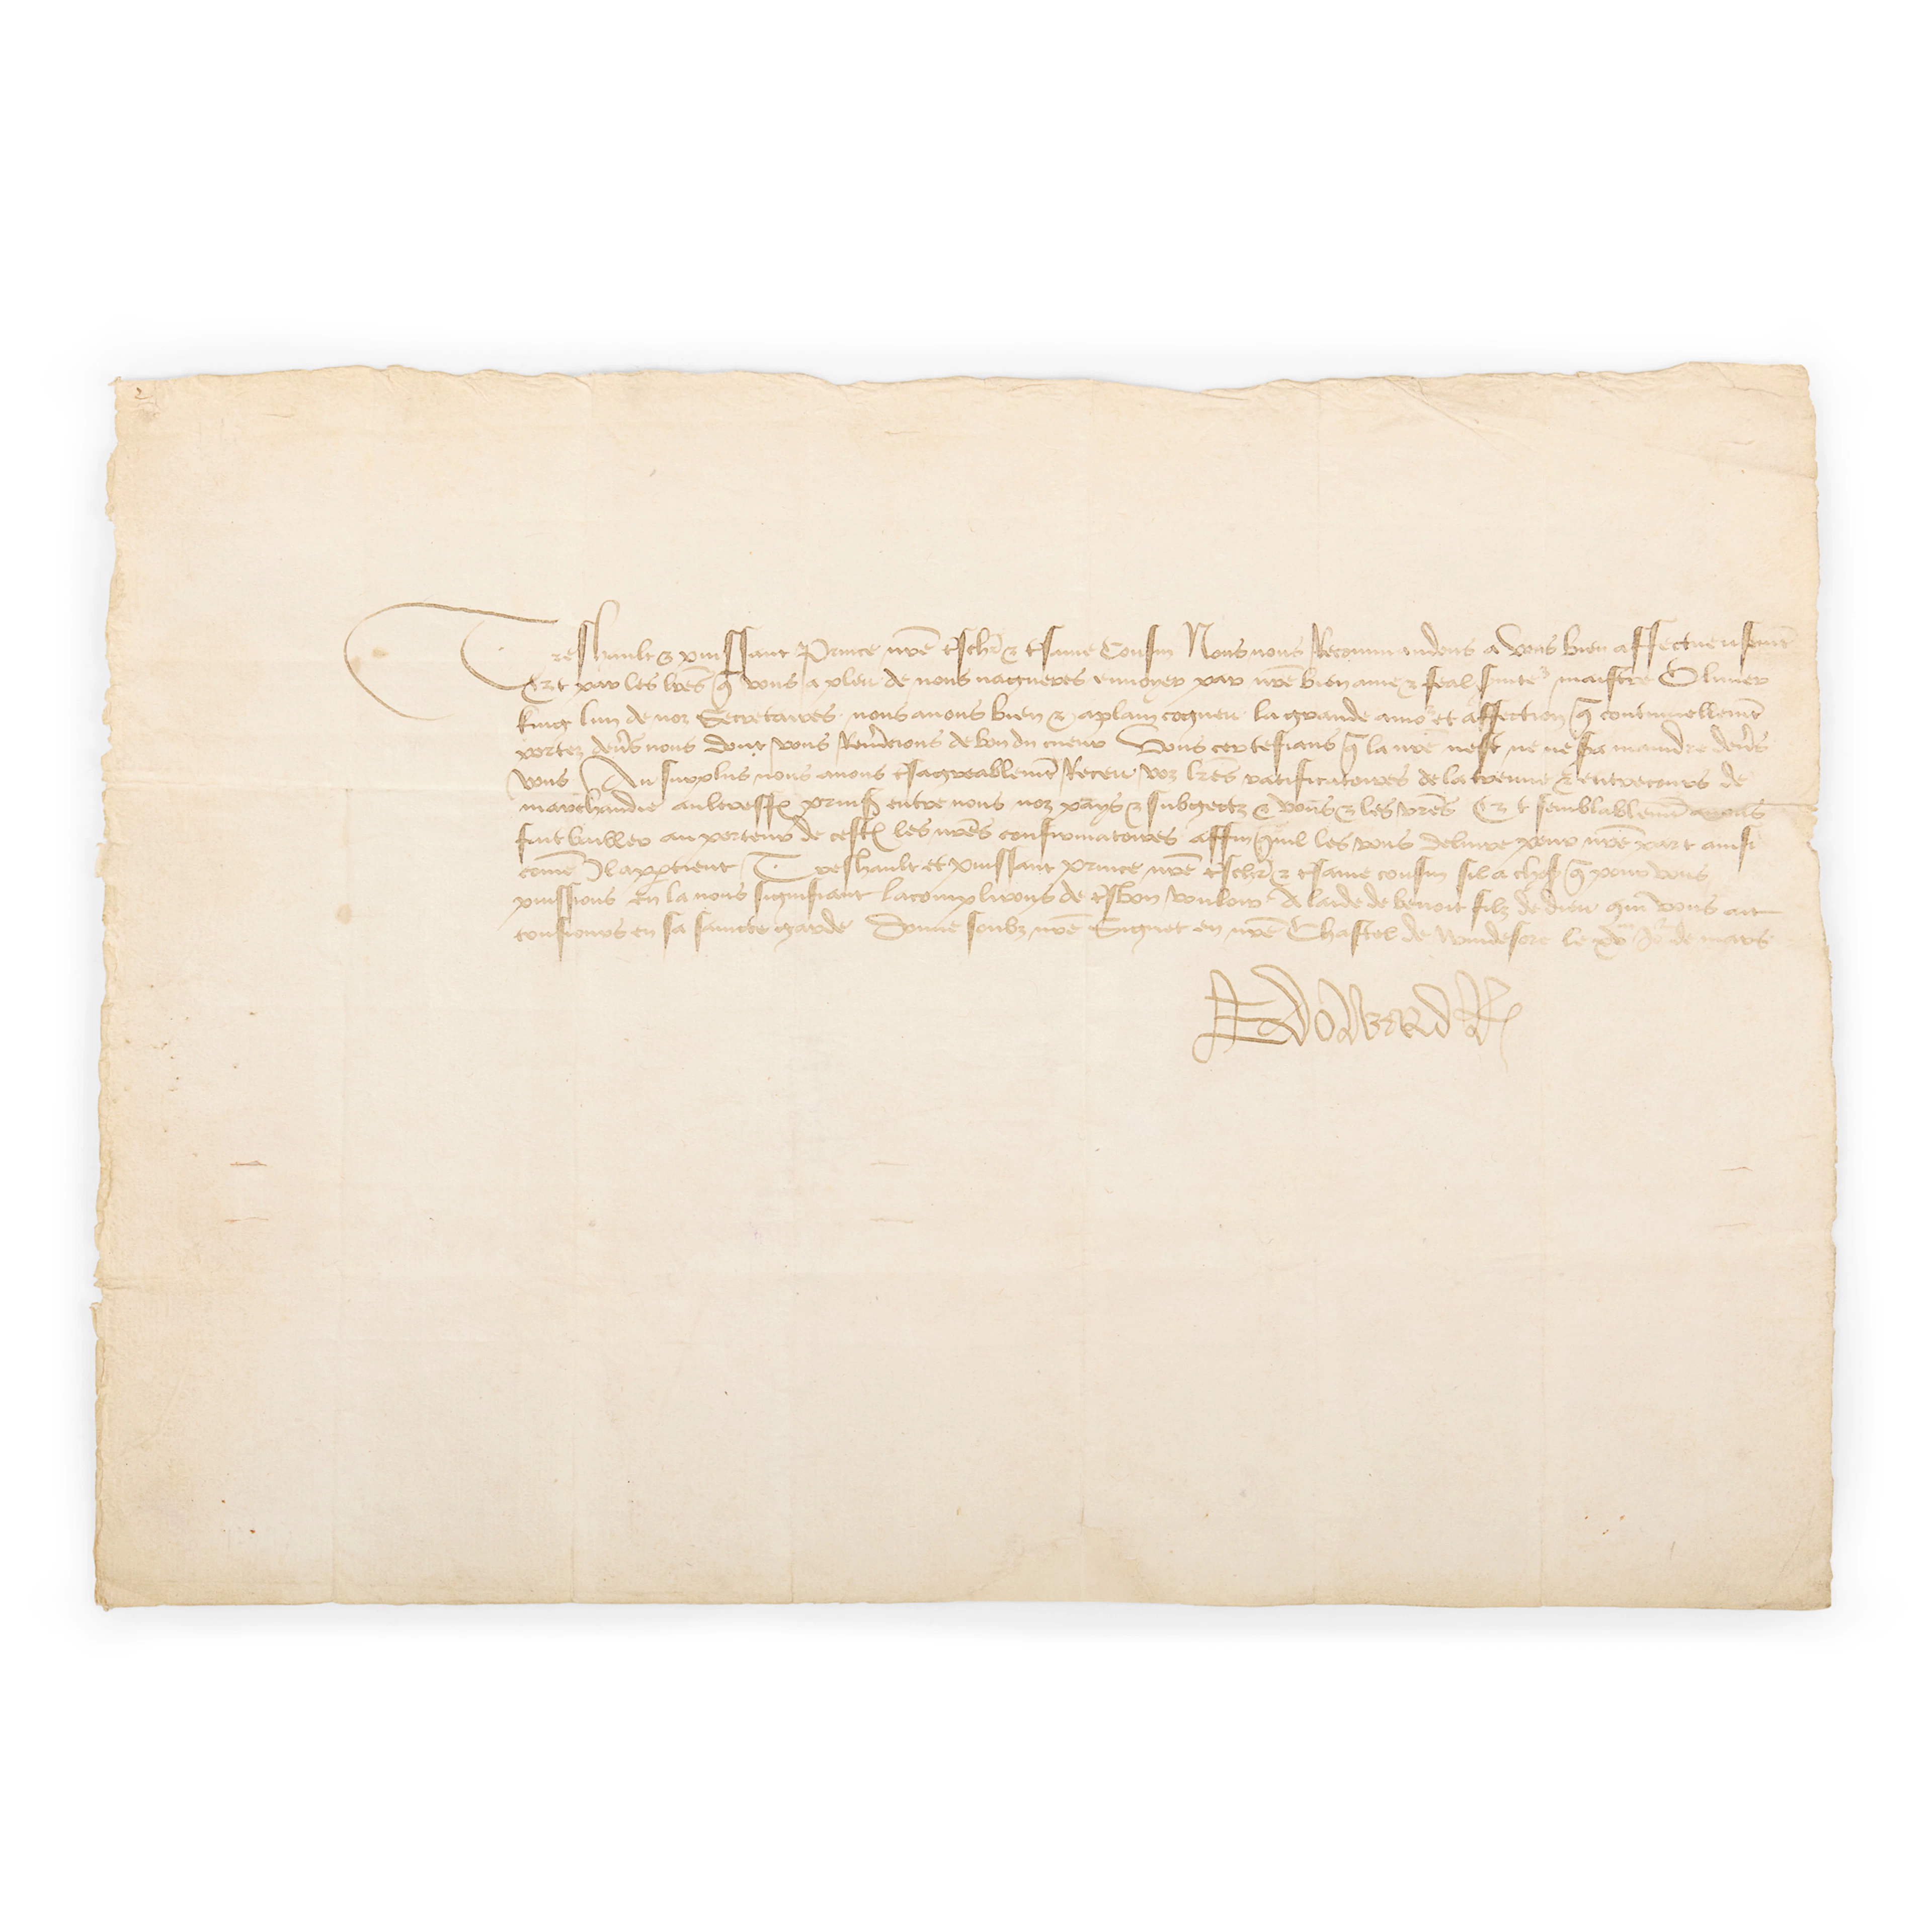 2
Treshault & puissant Prince nre tschr & tsame Cousin Nous nous Recommandons a vous bien affectueusemt
Et par les lres q vous a pleu de nous nagueres envoyer par nre bien ame & feal maistre Oliuier
king lun de noz Secretaires nous auons bien & aplain cogneu la grande amor et affection q continuellemt
portez deus nous dont vous Remcions de bon du cueur Vous certefians q la nre nest ne ne sa maindre deus
vous Au surplus nous auons tsagreablemt Receu voz lres ratificatoires de la treuue & entrecours de
marchandie prins entre nous noz pays & subgectz & vous & les vres Et semblablemt auons
fait bailler au porteur de cestes les nres confirmatoires affin quil les vous deliure pour nre part ainsi
come Il appartient Treshault et puissant prince nre tschr & tsame cousin sil a chose q pour vous
puissions en la nous signifiant lacomplirons de tsbon vouloir A laide de benoit filz de dieu qui vous ait
tousiours en sa saincte garde Donne soubz nre Signet en nre Chastel de Windesore le Jor de mars
Edward R